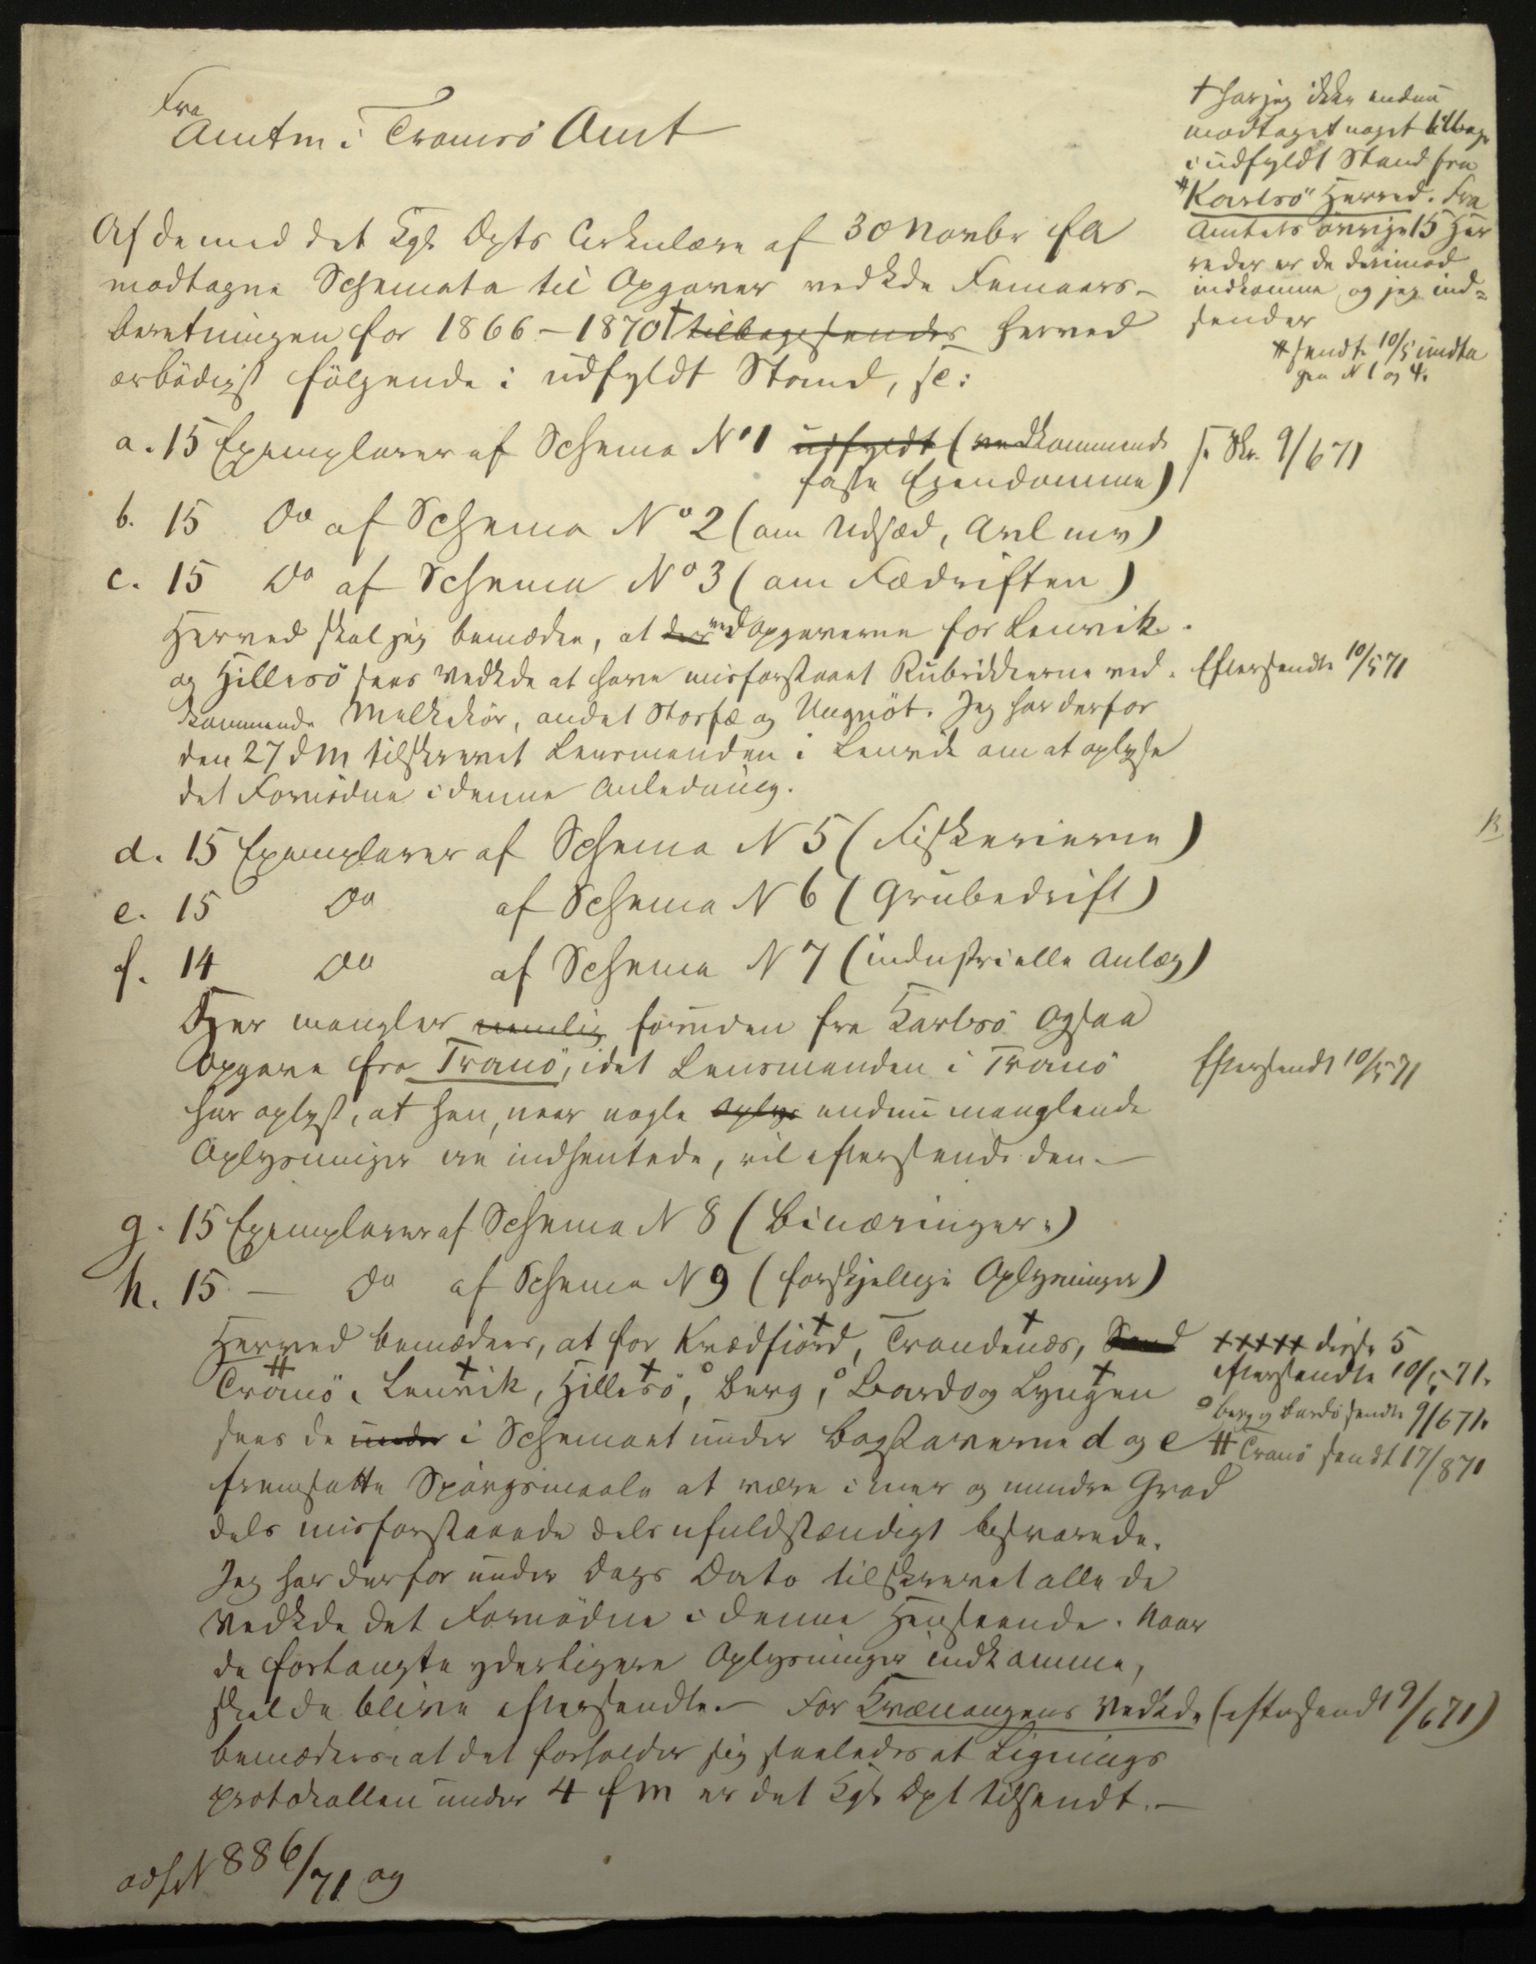 Fra
Amtm i Tromsö Amt
Af de med det Kgl Dpts Cirkulære af 30 Novbr f A
modtagne Schemata til Opgaver vedkde Femaars-
beretningen for 1866-1870 † tilbagesendes herved
ærbödigst fölgende i udfyldt Stand, sc:
† har jeg ikke endnu
modtaget noget tilbage
i udfyldt Stand fra
# Karlsö Herred. Fra
Amtets övrige 15 Her
reder er de derimod
indkomne og jeg ind=
sender
# sendt 10/5 undta
gen N 1 og 4.
a. 15 Exemplarer af Schema No 1 udfyldt (vedkommende
faste Ejendomme)
s. Skr. 9/6 71
b. 15 Do af Schema No 2 (om Udsæd, Avl mv)
c. 15 Do af Schema No 3 (om Fædriften)
Herved skal jeg bemærke, at der ved Opgaverne for Lenvik
og Hillesö sees Vedkde at have misforstaaet Rubrikkerne ved-
kommende Melkekör, andet Storfæ og Ungnöt. Jeg har derfor
den 27 d M tilskrevet Lensmanden i Lenvik om at oplyse
det Fornödne i denne Anledning.
Eftersendte 10/5 71
d. 15 Exemplarer af Schema N 5 (Fiskerierne)
e. 15 Do af Schema N 6 (Grubedrift)
f. 14 Do af Schema N 7 (industrielle Anlæg)
Her mangler nemlig foruden fra Karlsö ogsaa
Opgave fra Tranö, idet Lensmanden i Tranö
har oplyst, at han, naar nogle Oplys endnu manglende
Oplysninger ere indhentede, vil eftersende den.-
Eftersendt 10/5 71
g. 15 Exemplarer af Schema N 8 (Binæringer)
h. 15 - Do af Schema N 9 (forskjellige Oplysninger)
Herved bemærkes, at for Kvædfiord, Trondenæs, Sand
Tranö, Lenvik, Hillesö, Berg, Bardo og Lyngen
sees de under i Schemaet under Bogstaverne d og e
fremsatte Spörgsmaale at være i mer og mindre Grad
dels misforstaaede dels ufuldstændigt besvarede.
Jeg har derfor under Dags Dato tilskrevet alle de
Vedkde det Fornödne i denne Henseende. Naar
de forlangte yderligere Oplysninger indkomme,
skal de blive eftersendte.- For Kvænangens Vedkde (eftersendt 9/6 71)
bemærkes, at det forholder sig saaledes at Lignings
protokollen under 4 f M er det Kgl Dpt tilsendt.-
+++++ disse 5
eftersendte 10/5 71.
o Berg og Bardo sendte 9/6 71.
# Tranö sendt 17/8 71
ad N 886/71 og